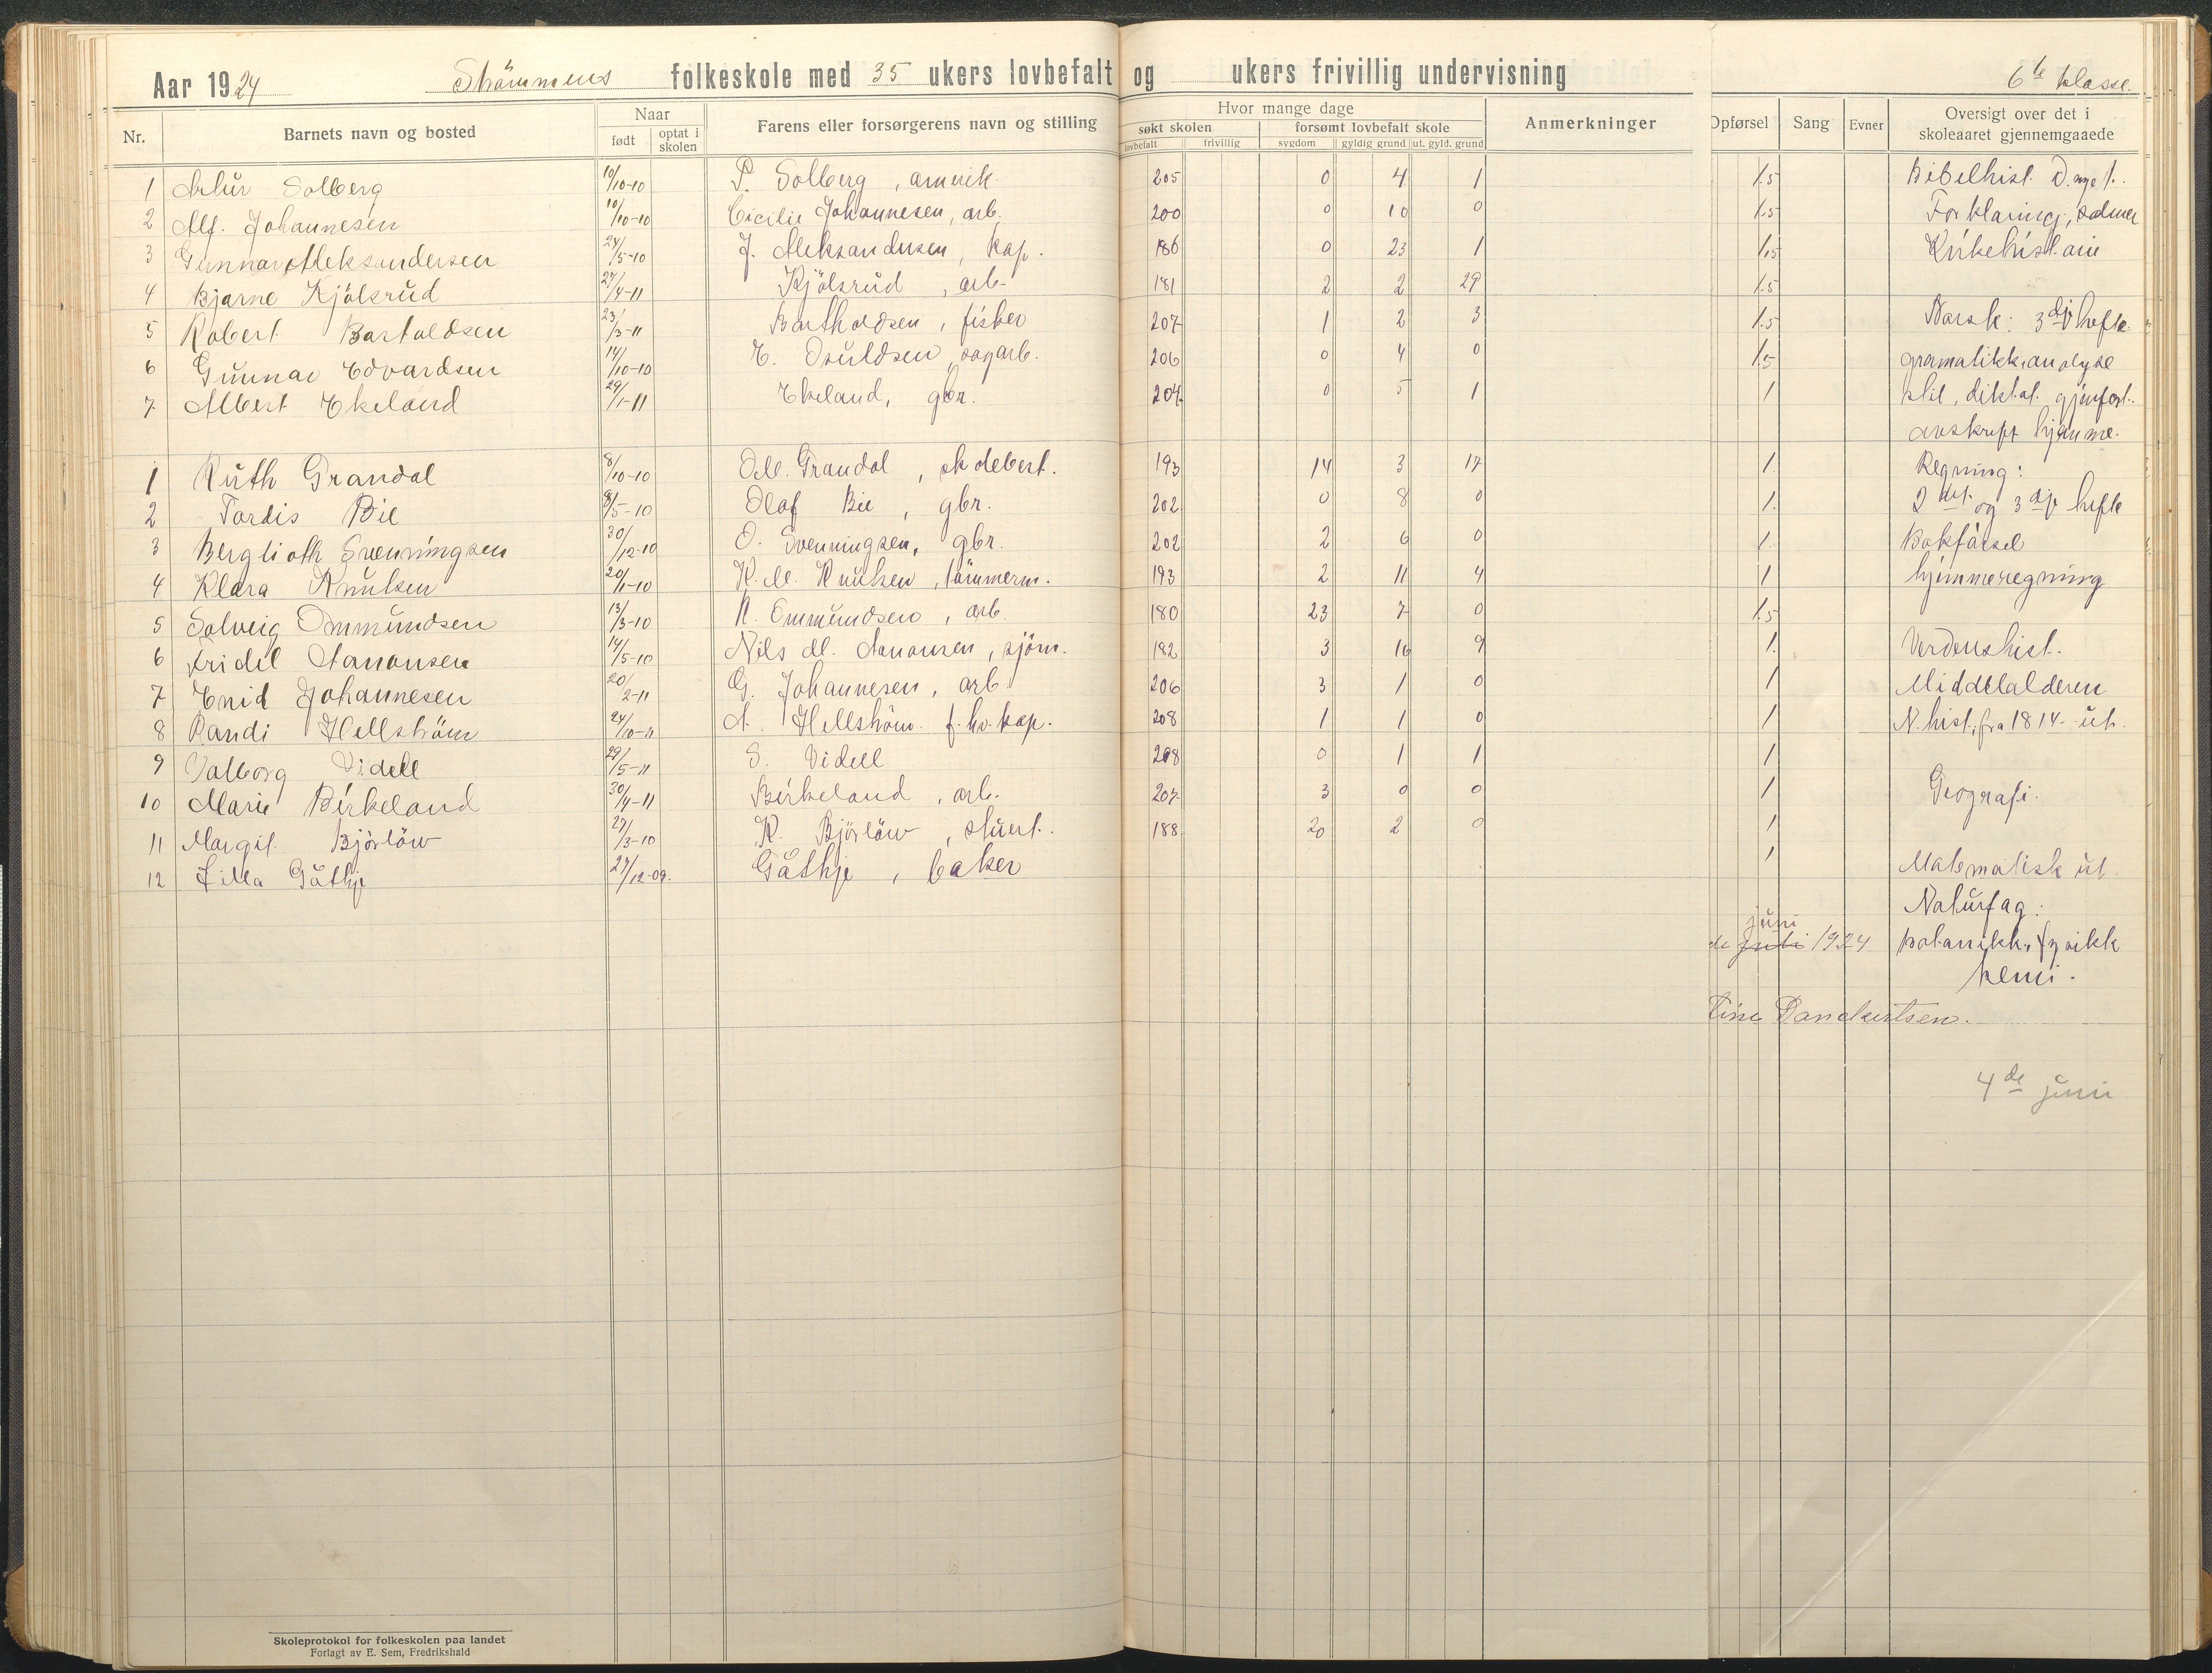 Aar 1924 Strömmens folkeskole med 35 ukers lovbefalt og ukers frivillig undervisning 6te klasse.
Nr. Barnets navn og bosted Naar født optat i skolen Farens eller forsørgerens navn og stilling Hvor mange dage søkt skolen lovbefalt frivillig forsømt lovbefalt skole sygdom gyldig grund ut. gyld. grund Anmerkninger Opførsel Sang Evner Oversigt over det i skoleaaret gjennemgaaede
1 Artur Solberg 10/10-10 P. Solberg, 205 0 4 1 1.5 Bibelhist. D. nye t.
2 Alf. Johannesen 10/10-10 Cicilie Johannesen, arb. 200 0 10 0 1.5 Forklaring, salmer
3 Gunnar Aleksandersen 24/5-10 J. Aleksandersen, kap. 186 0 23 1 1.5 Kirkehistorie
4 Bjarne Kjölsrud 27/4-11 Kjölsrud, arb. 181 2 2 29 1.5
5 Robert Bartoldsen 23/3-11 Bartholdsen, fisker 207 1 2 3 1.5 Norsk: 3dje hefte
6 Gunnar Edvardsen 14/10-10 E. Osuldsen, sagarb. 206 0 4 0 1.5 gramatikk, analyse
7 Albert Ekeland 29/1-11 Ekeland, gbr. 204 0 5 1 1 stil, diktat. gjenfort.
avskrift hjemme.
1 Ruth Grandal 8/10-10 Grandal, 193 14 3 17 1. Regning:
2 Tordis Bie 8/5-10 Olaf Bie, gbr. 202 0 8 0 1. 2det og 3dje hefte
3 Berglioth Svenningsen 30/12-10 O. Svenningsen, gbr. 202 2 6 0 1. Bokførsel
4 Klara Knutsen 20/1-10 K. M. Knutsen, tömmerm. 193 2 11 4 1 hjemmeregning
5 Solveig Ommundsen 13/3-10 N. Ommundsen, arb. 180 23 7 0 1.5
6 Fridel Aanonsen 14/5-10 Nils M. Aanonsen, sjöm. 182 3 16 9 1. Verdenshist.
7 Enid Johannesen 20/2-11 G. Johannesen, arb. 206 3 1 0 1 Middelalderen
8 Randi Hellström 24/10-11 A. Hellström. f. hv. kap. 208 1 1 0 1 N. hist. fra 1814- ut.
9 Valborg Videll 29/5-11 S. Videll 208 0 1 1 1
10 Marie Birkeland 30/4-11 Birkeland, arb. 207 3 0 0 1 Geografi.
11 Margit Björlöw 27/3-10 K. Björlöw, stuert. 188 20 2 0 1
12 Lilla Gåthje 27/12-09. Gåthje, baker 1 Matematisk ut.
Naturfag:
juni
de Juli 1924 botanikk, fysikk
kemi.
Danckertsen.
4de juni
Skoleprotokol for folkeskolen paa landet
Forlagt av E. Sem, Fredrikshald